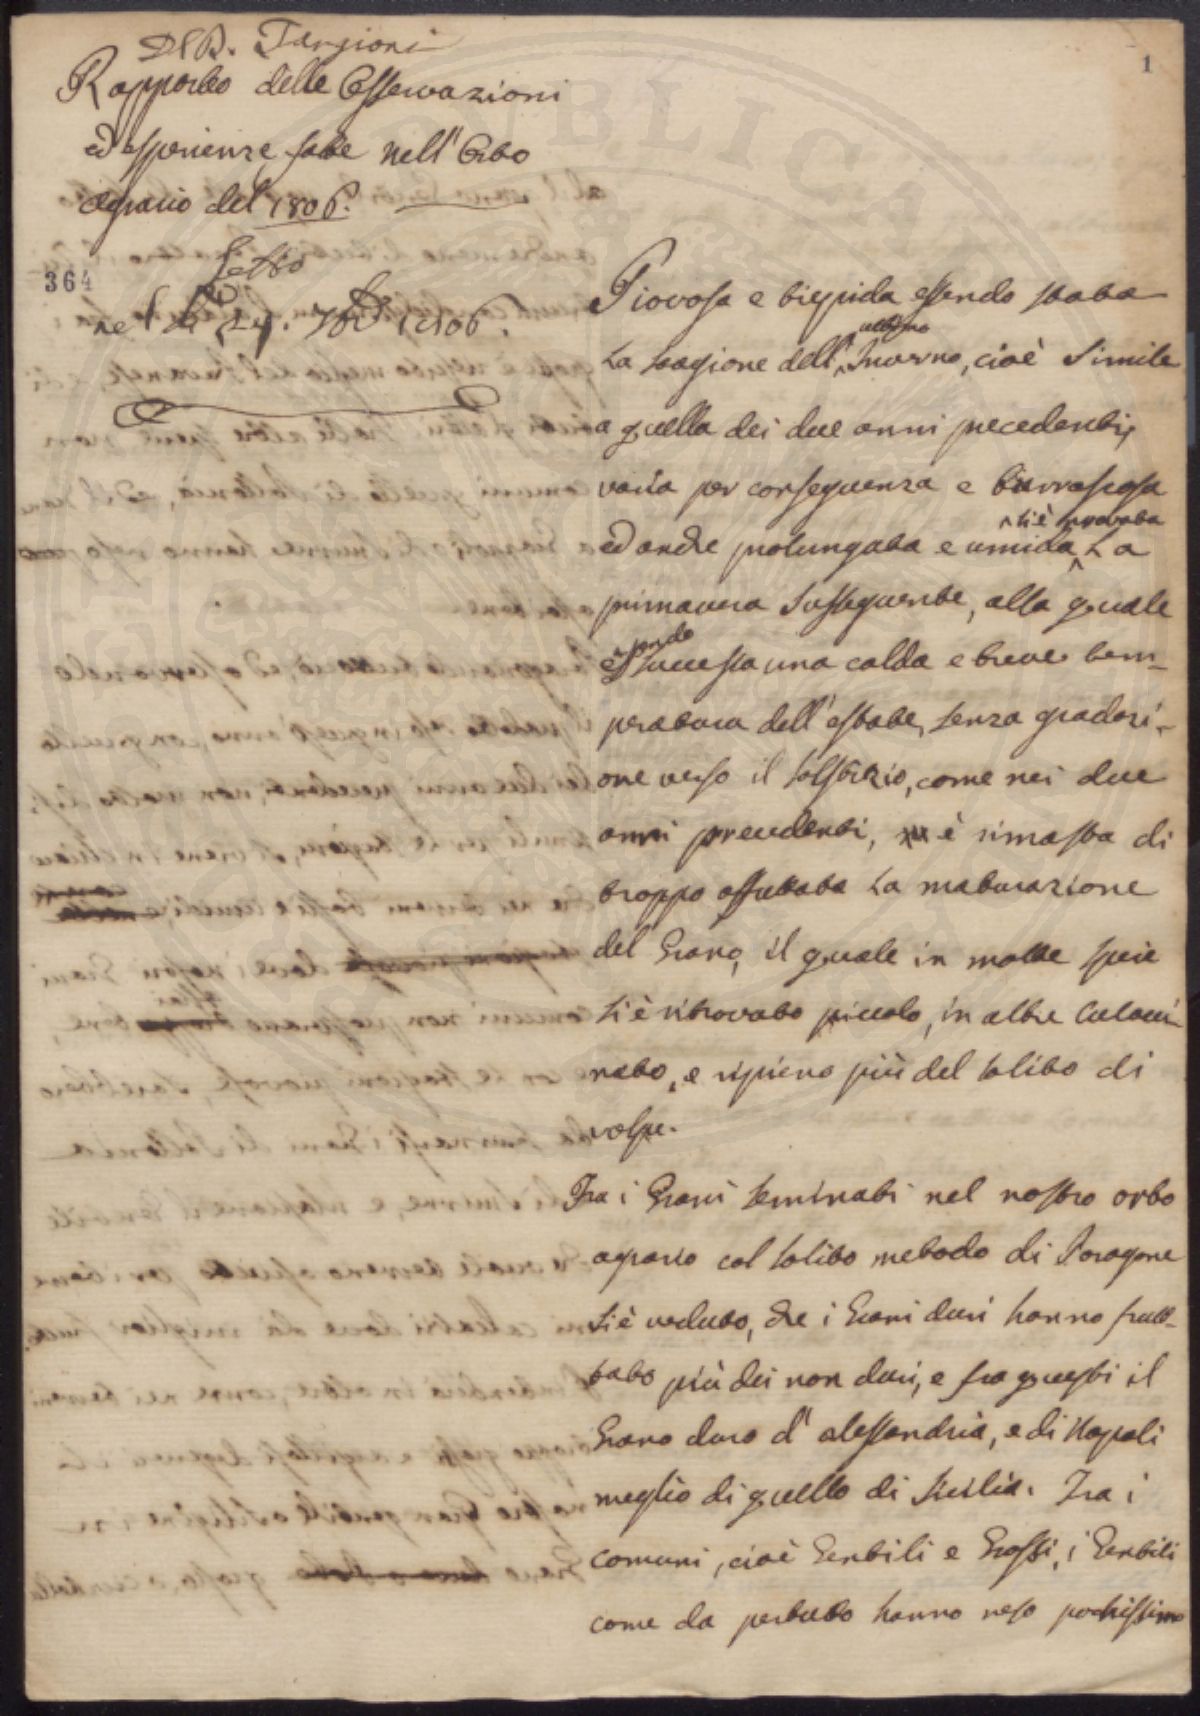 Del D. Targioni
Rapporto delle Osservazioni
ed esperienze fatte nell'Orto
agrario del 1806.
Letto
nel dì 24. 7bre 1806.
364
1
Piovosa e tiepida essendo stata
la stagione dell' ultimo Inverno, cioè simile
a quella dei due anni precedenti,
varia per conseguenza e burrascosa
ed anche prolungata e umida si è provata la
primavera susseguente, alla quale
essendo successa una calda e breve tem-
peratura dell'estate, senza gradazi-
one verso il solstizio, come nei due
anni precedenti, è rimasta di
troppo affrettata la maturazione
del Grano, il quale in molte specie
si è ritrovato piccolo, in altre
nato, e ripieno più del solito di
volpe.
Tra i Grani seminati nel nostro orto
agrario col solito metodo di Paragone
si è veduto, che i Grani duri hanno frut-
tato più dei non duri, e fra questi il
Grano duro d'alessandria, e di Napoli
meglio di quello di Sicilia. Tra i
comuni, cioè Gentili e Grossi, i Gentili
come da pertutto hanno reso pochissimo